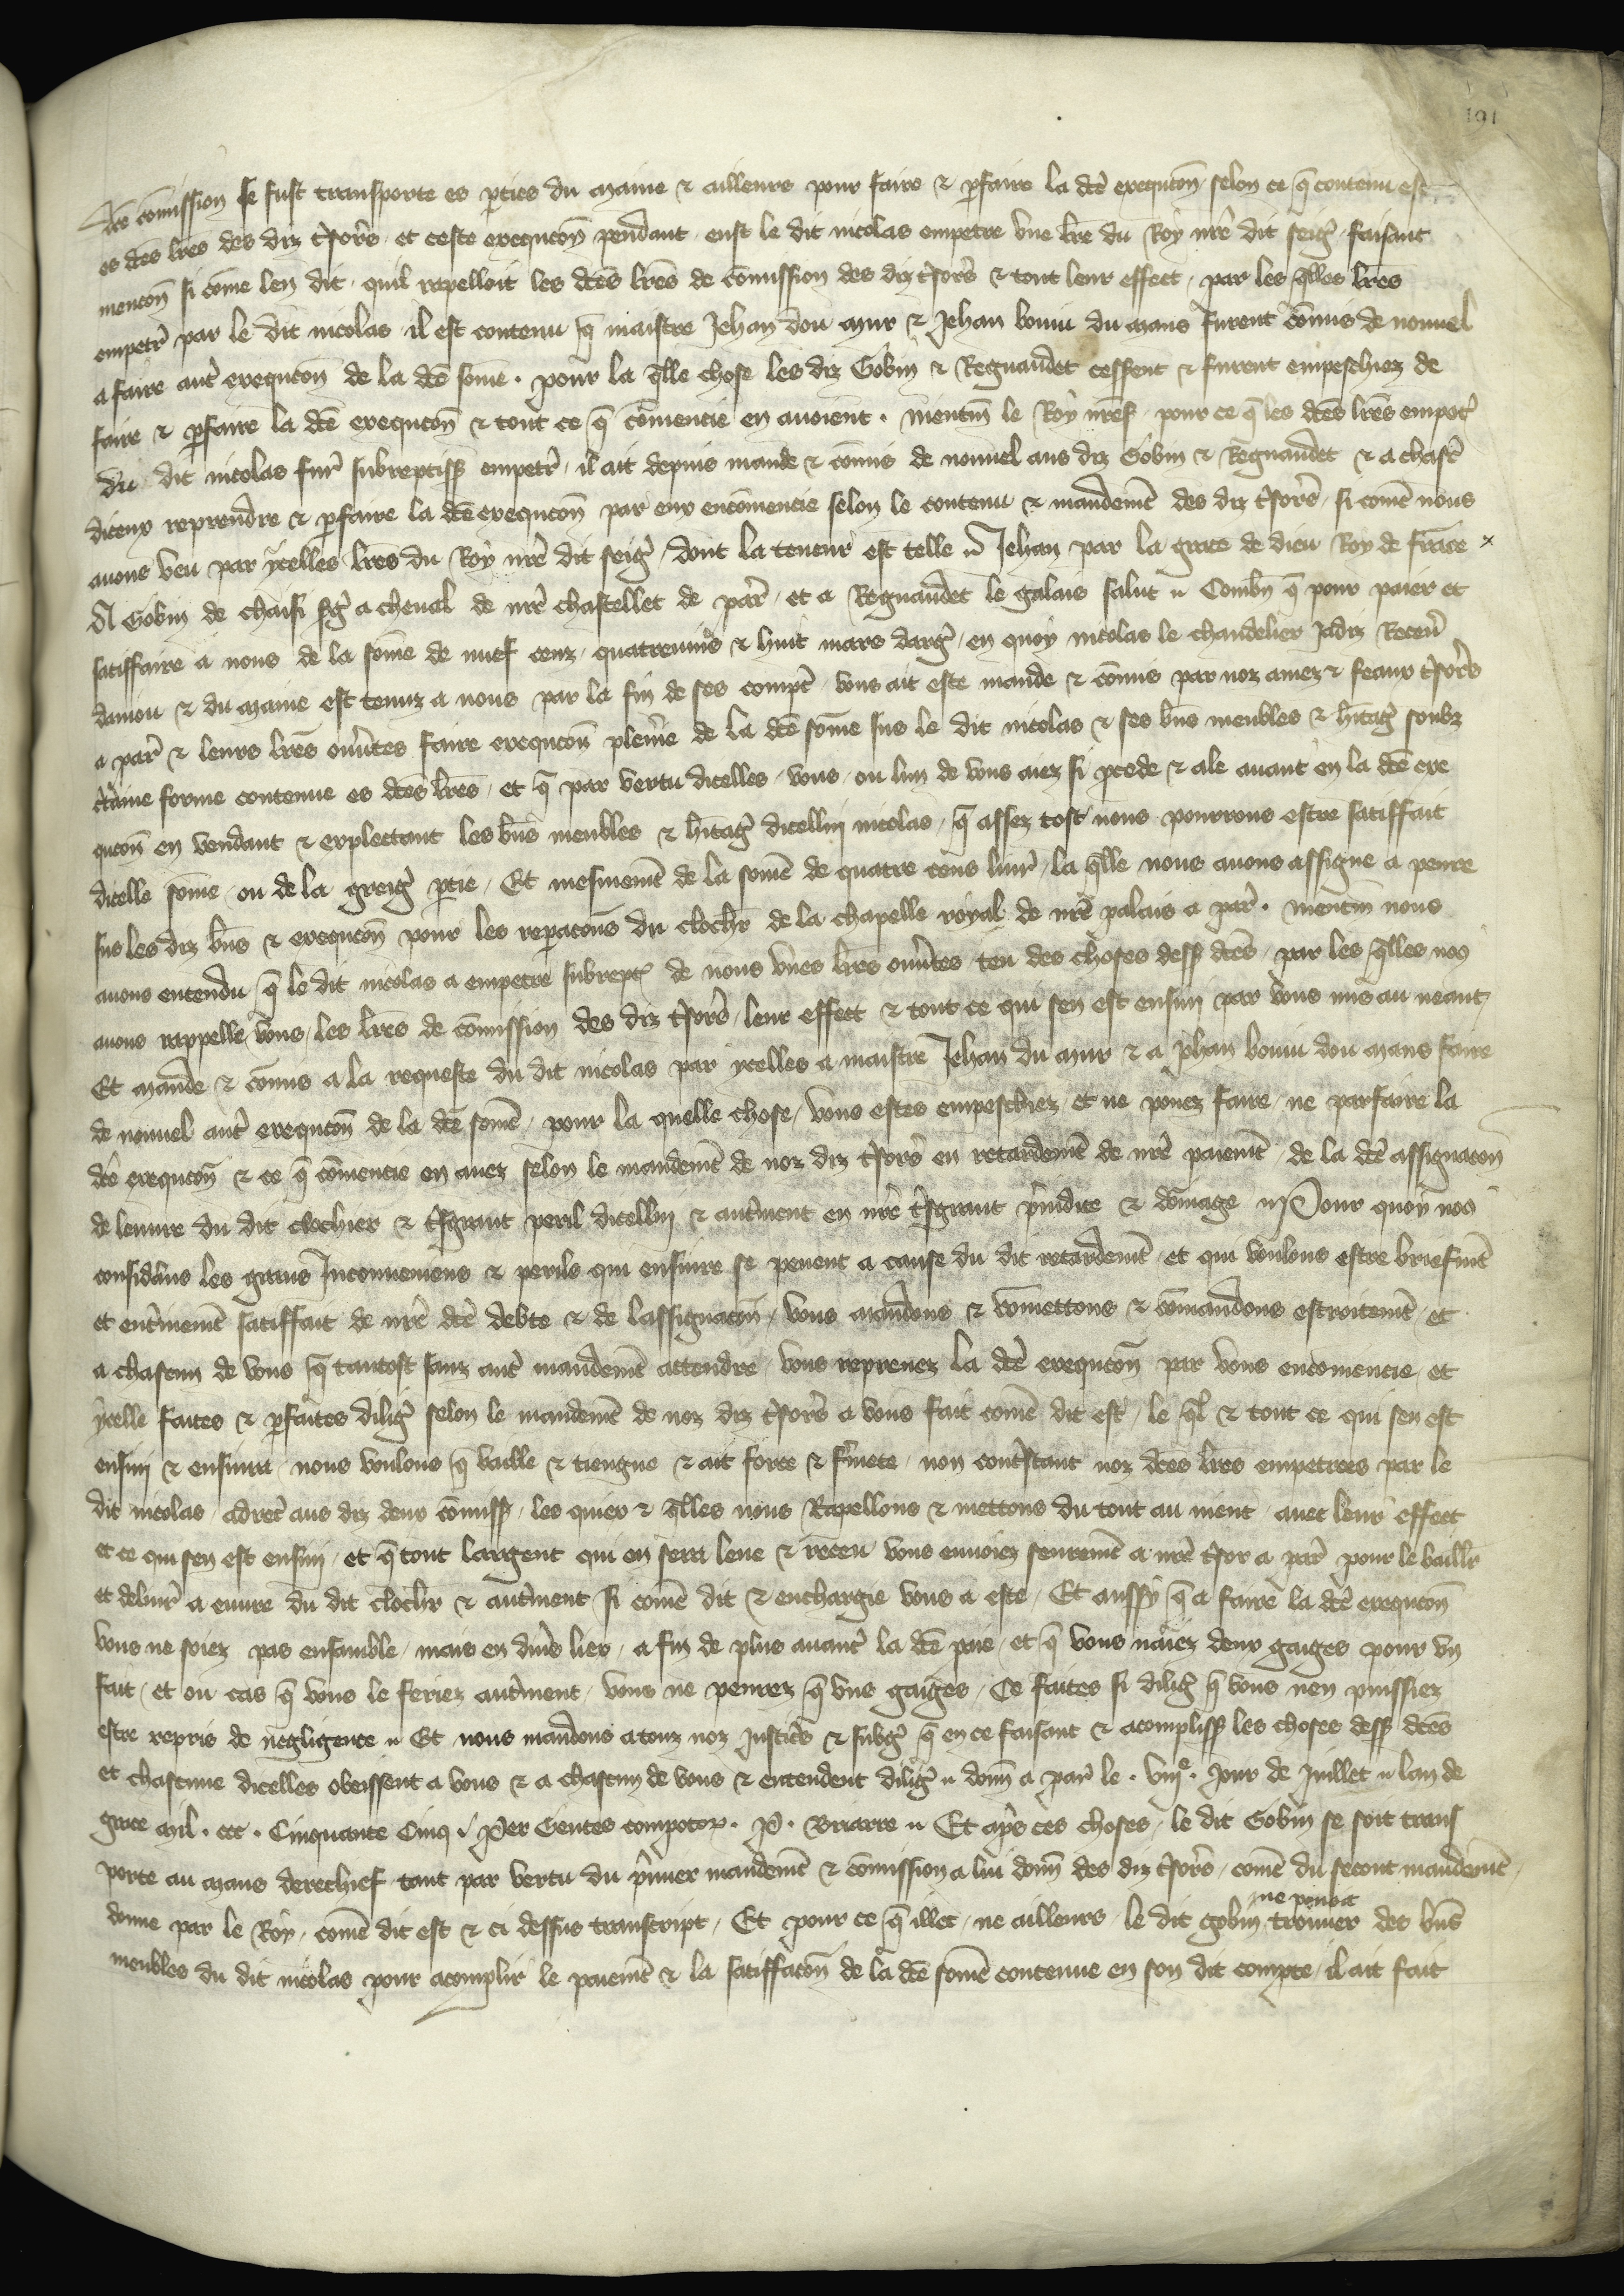 191
dcē cōmission se fust transporte es pties du maine & ailleurs pour faire & pfaire la dcē exequcōn selon ce q̄ contenu est
es dcēs lrēs des diz t̄sors et ceste exequcōn pendant eust le dit nicolas empetre vne lrē du Roy nrē dit seigr faisant
mencōn si cōme len dit quil rapelloit les dcēs lrēs de cōmission des diz t̄sors & tout leur effect par les q̄lles lrēs
empetr par le dit nicolas il est contenu q̄ maistre Jehan dou mur & Jehan bouiu du mans furent cōmis de nouuel
a faire autr exequcōn de la dcē sōme . pour la q̄lle chose les diz Gobin & Regnaudet cessent & furent empeschiez de
faire & pfaire la dcē exequcōn & tout ce q̄ cōmencie en auoient . mentm̄ le Roy nrē pour ce q̄ les dcēs lrēs empetr
du dit nicolas fur subreptiss empetr il ait depuis mande & cōmis de nouuel aus diz Gobin & Regnaudet & a chasc
diceux reprendre & pfaire la dcē exequcōn par eux encōmencie selon le contenu & mandemt des diz t̄sors si comē nous
auons veu par ycelles lrēs du Roy nrē dit seigr dont la teneur est telle Jehan par la grace de dieu Roy de frāce
A Gobin de chaisi sgr a cheual de nrē chastellet de par et a Regnaudet le galais salut Combn̄ q̄ pour paier et
satiffaire a nous de la sōme de nuef cenz quatreuins & huit mars darg en quoy nicolas le chandelier Jadiz Receur
daniou & du maine est tenuz a nous par la fin de ses compt vous ait este mande & cōmis par noz amez & feaux t̄sors
a par & leurs lrēs ouūtes faire exequcōn plenre de la dcē sōme sus le dit nicolas & ses bn̄s meubles & hitag soubz
ctaine forme contenue es dcēs lrēs et q̄ par vertu dicelles vous ou lun de vous aiez si pcede & ale auant en la dcē exe
qucōn en vendant & explectant les bn̄s meubles & hitag dicelluy nicolas q̄ assez tost nous pourrons estre satiffait
dicelle sōme ou de la greigr ptie Et mesmemt de la somē de quatre cens liur la q̄lle nous auons assigne a penre
sus les diz bn̄s & exequcōn pour les repacōns du clochr de la chapelle royal de nrē palais a par . mentm̄ nous
auons entendu q̄ le dit nicolas a empetre subrept de nous vnes lrēs ouūtes teu des choses dess dcēs par les q̄lles nos
auons rappelle vous les lrēs de cōmission des diz t̄sors leur effect & tout ce qui sen est ensuiu par vous mis au neant
Et mande & cōmis a la requeste du dit nicolas par ycelles a maistre Jehan du mur & a jehan bouiu dou mans faire
de nouuel autr exequcōn de la dcē somē pour la quelle chose vous estes empeschiez et ne pouez faire ne parfaire la
dcē exequcōn & ce q̄ cōmencie en auez selon le mandemt de noz diz t̄sors en retardemt de nrē paiemt de la dcē assignacōn
de leuure du dit clochier & t̄sgrant peril dicelluy & autrment en nrē t̄sgrant priudice & dōmage Pour quoy nos
considans les grans Inconueniens & perils qui ensuire se peuent a cause du dit retardemt et qui voulons estre briefmt
et entrinemt satiffait de nrē dcē debte & de lassignacōn vous mandons & cōmettons & cōmandons estroitemt et
a chascun de vous q̄ tantost sanz autr mandemt attendre vous reprenez la dcē exequcōn par vous encomencie et
ycelle faites & pfaites dilig selon le mandemt de noz diz t̄sors a vous fait comē dit est le q̄l & tout ce qui sen est
ensuiu & ensuiura nous voulons q̄ vaille & tiengne & ait force & frmete non contrstant noz dcēs lrēs empetrees par le
dit nicolas adrec aus diz deux cōmiss les quiex & q̄lles nous Rapellons & mettons du tout au nient auec leur effect
et ce qui sen est ensuiu et q̄ tout largent qui en sera leue & receu vous enuoiez seuremt a nrē t̄sor a par pour le baillr
et deliurr a euure du dit clochr & autrment si comē dit & enchargie vous a este Et aussy q̄ a faire la dcē exequcōn
vous ne soiez pas ensamble mais en diūs liex a fin de plus auancr la dcē paie et q̄ vous naiez deux gaiges pour vn
fait et ou cas q̄ vous le feriez autrment vous ne penrez q̄ vns gaiges Ce faites si dilig q̄ vous nen puissiez
estre repris de negligence Et nous mandons a touz noz justicrs & subgr q̄ en ce faisant & acompliss les choses dess dcēs
et chascune dicelles obeissent a vous & a chascun de vous & entendent dilig donn a par le . viije . jour de juillet lan de
grace mil . ccc . Cinquante Cinq Per Gentes compotor . P . Briarre Et aprs ces choses le dit Gobin se soit trans
porte au mans derechief tant par vertu du prmier mandemt & cōmission a lui donn des diz t̄sors comē du secont mandemt
donne par le Roy comē dit est & ci dessus transcript Et pour ce q̄ illec ne ailleurs le dit gobin ne pouoit trouuer des bn̄s
meubles du dit nicolas pour acomplir le paiemt & la satiffacōn de la dcē somē contenue en son dit compte il ait fait